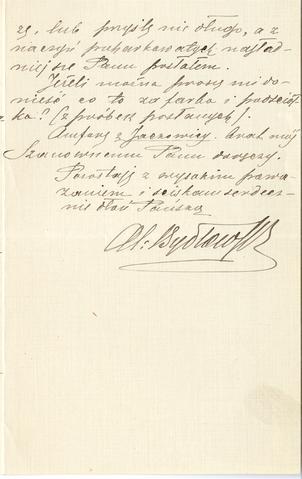 rę, lub przyślę nie długo, a z
naczyń puharkowatych najład
niejsze Panu posłałem.
Jeżeli można proszę mi do-
nieść co to za farba i podściół
ka? (z próbek posłanych).
Amforę z Jaczowicy. Brak mój
Szanownemu Panu
Pozostaję z wysokim powa-
żaniem i ściskam serdecz-
nie dłoń Pańską
Al: Bydłowski